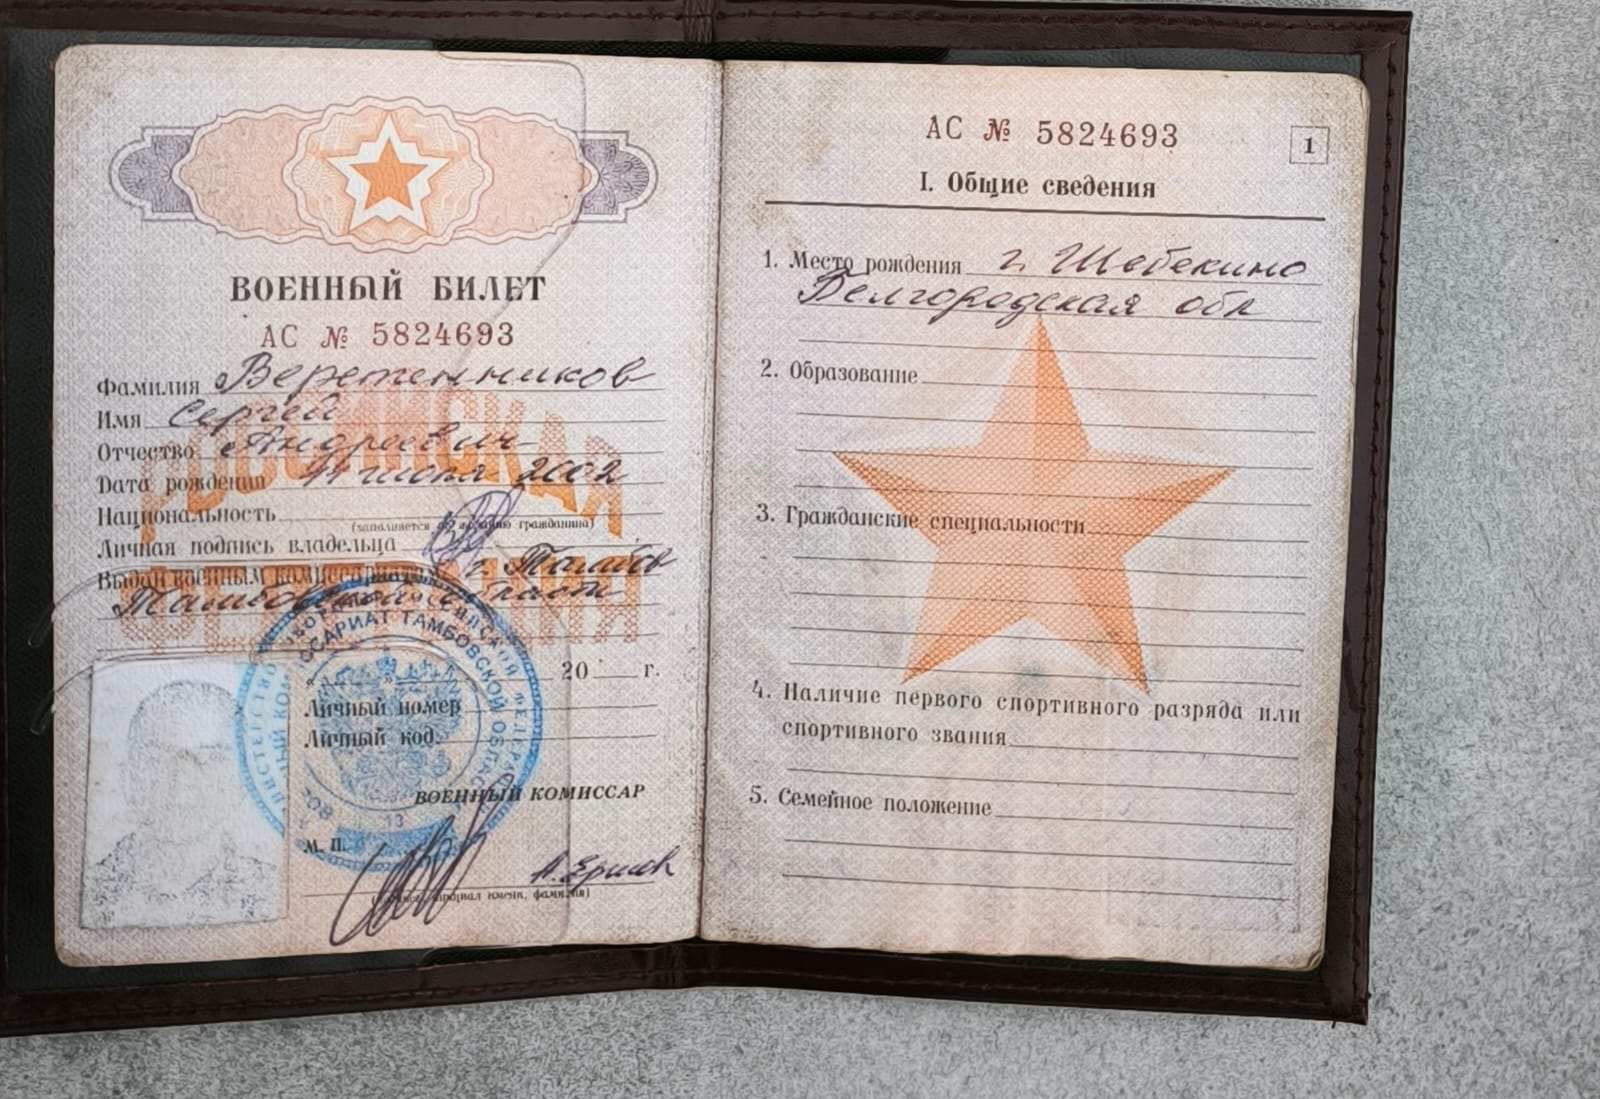 ВОЕННЫЙ БИЛЕТ
АС № 5824693
Фамилия Веретенников
Имя Сергей
Отчество Андреевич
Дата рождения 11 июля 2002
Национальность
(заполняется по гражданина)
Личная подпись владельца
Выдан военным комиссариатом г. Тамбов
Тамбовской области
РОССИЙСКАЯ
ФЕДЕРАЦИЯ
ТАМБОВСКОЙ
20 г.
Личный номер
Личный код
ВОЕННЫЙ КОМИССАР
13
М. П.
А. Ершов
имени, фамилия)
АС № 5824693
1
I. Общие сведения
1. Место рождения г. Шебекино
Белгородская обл
2. Образование
3. Гражданские специальности
4. Наличие первого спортивного разряда или
спортивного звания
5. Семейное положение